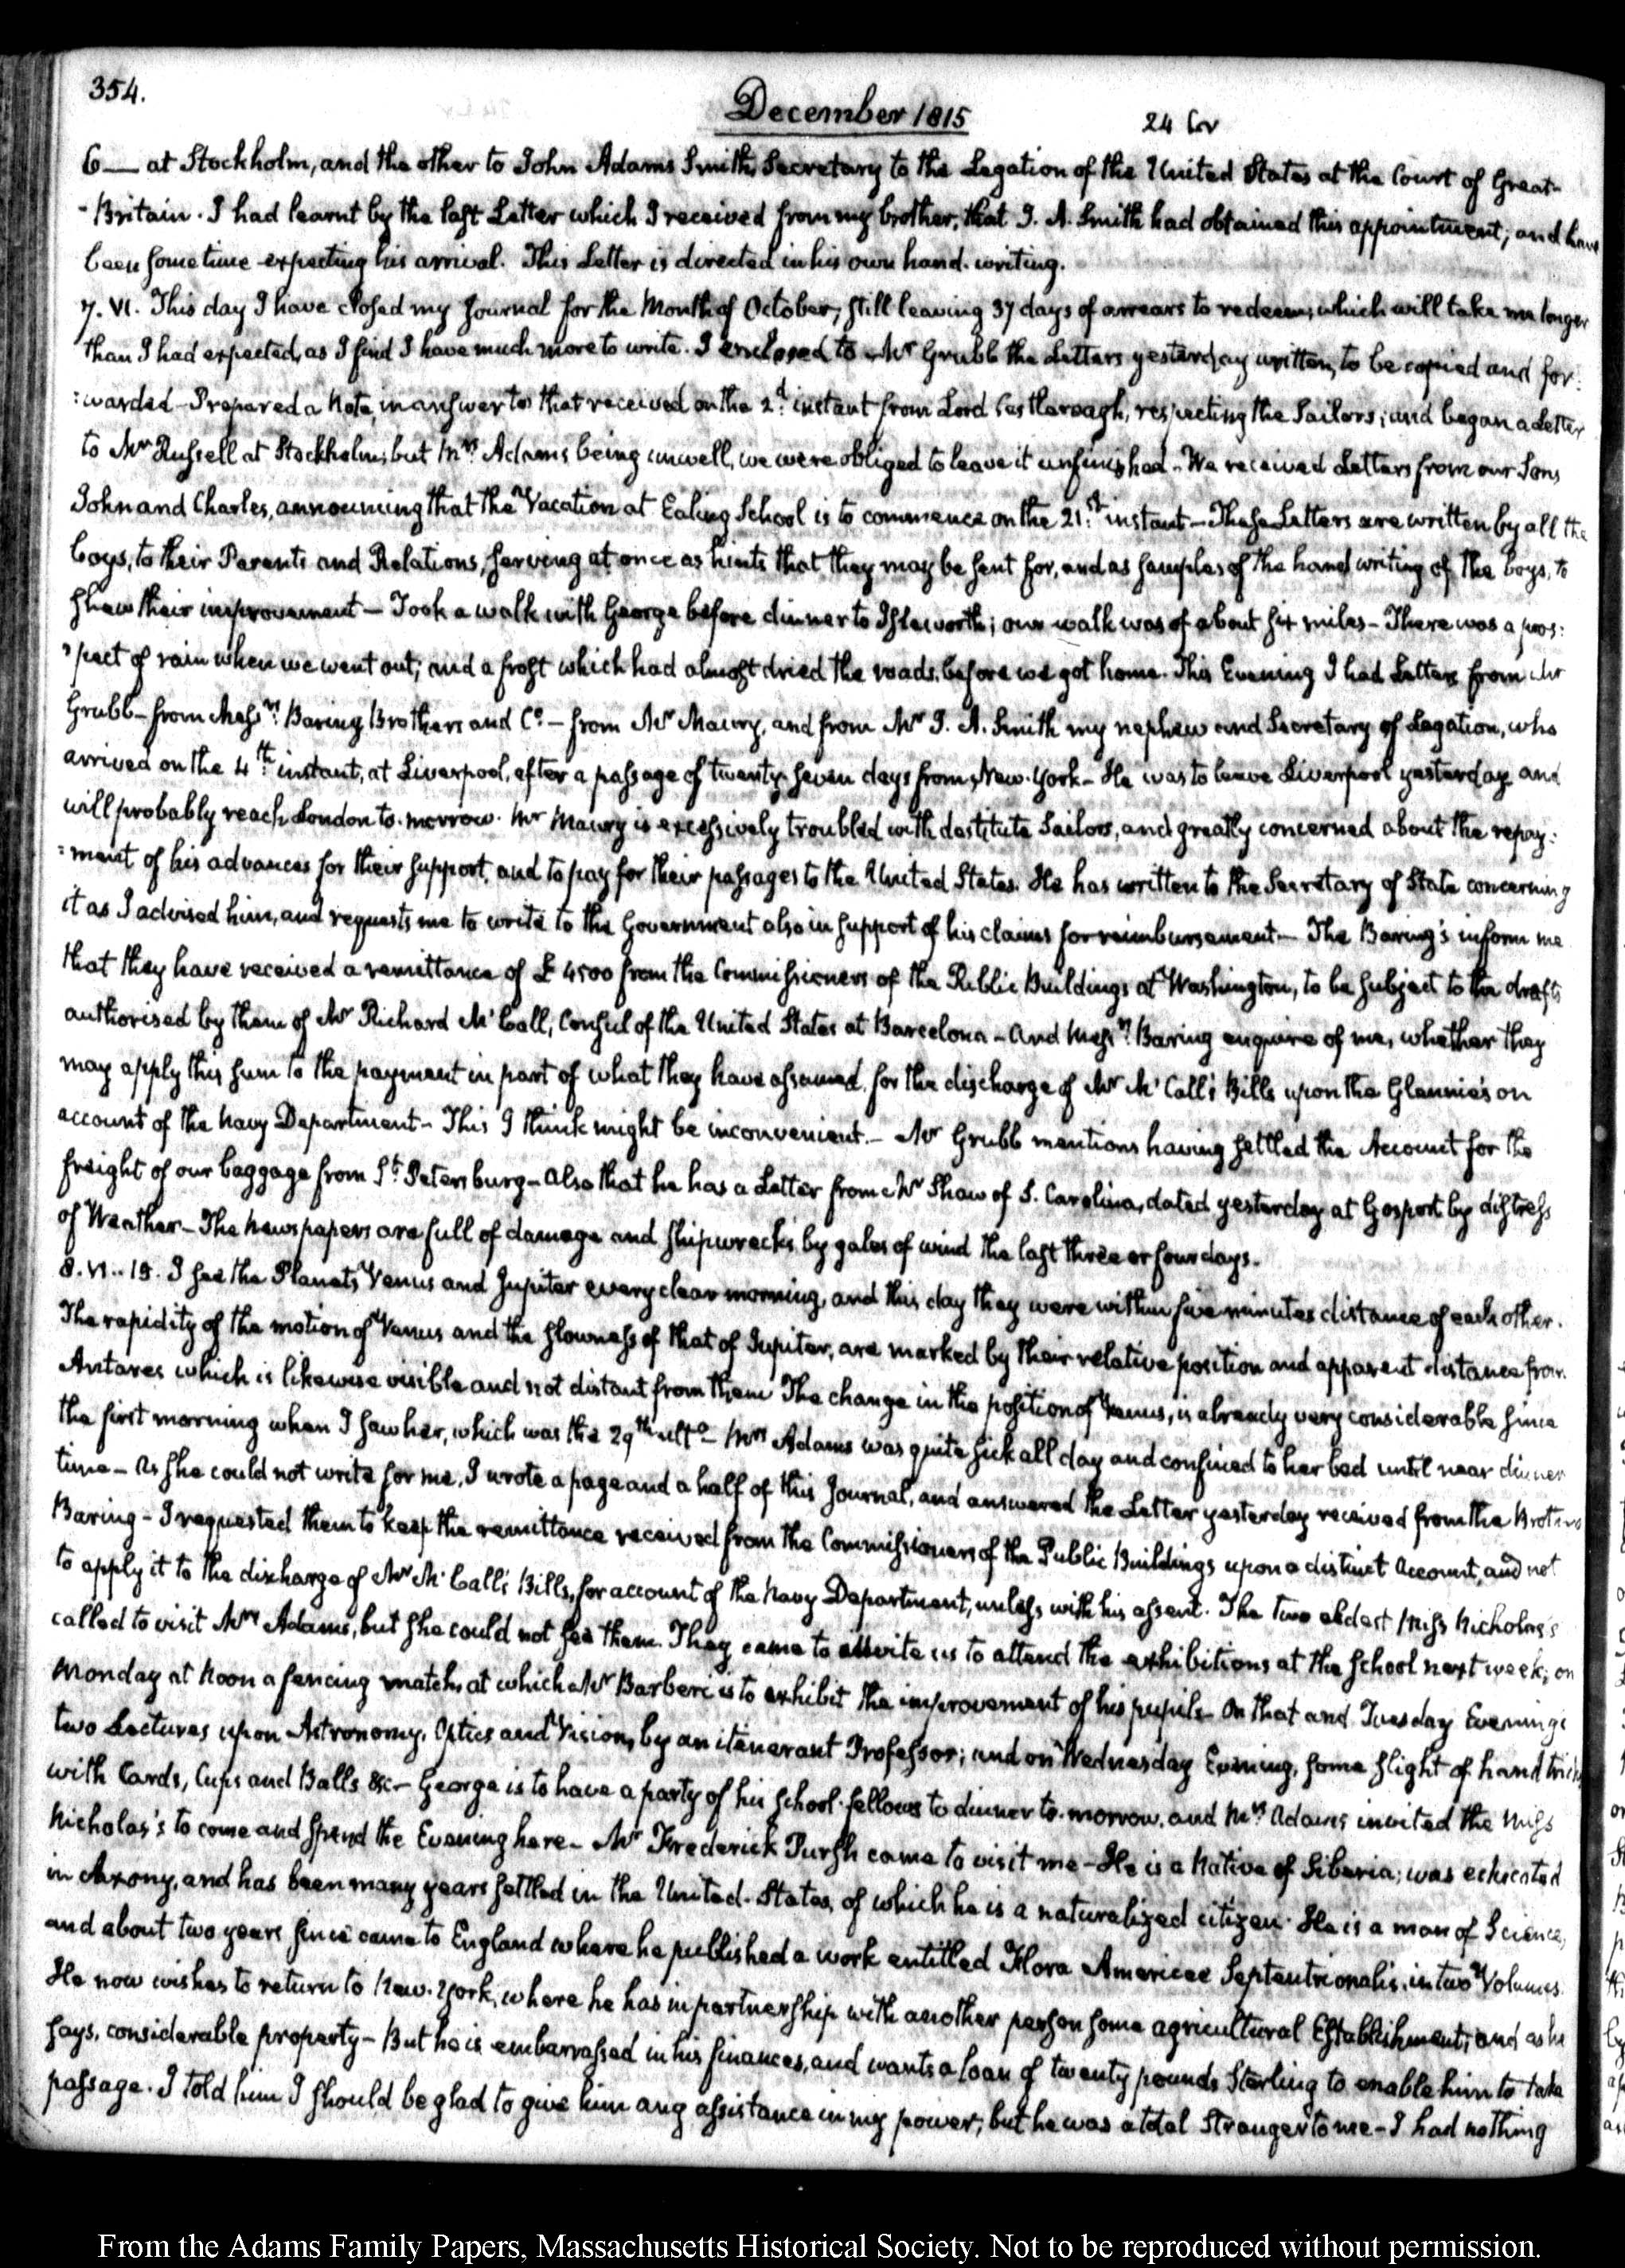 354.
December 1815
24
6— at Stockholm, and the other to John Adams Smith, Secretary to the Legation of the United States at the Court of Great-
-Britain. I had learnt by the last Letter which I received from my brother, that J. A. Smith had obtained this appointment; and have
been sometime expecting his arrival. This Letter is directed in his own hand-writing.
7. VI. This day I have closed my Journal for the Month of October, still leaving 37 days of arrears to redeem, which will take me longer
than I had expected, as I find I have much more to write. I enclosed to Mr Grubb the Letters yesterday written, to be copied and for:
:warded — Prepared a Note, in answer to that received on the 2d. instant from Lord Castlereagh, respecting the Sailors; and began a Letter
to Mr Russell at Stockholm; but Mrs. Adams being unwell, we were obliged to leave it unfinished — We received Letters from our Sons
John and Charles, announcing that the Vacation at Ealing School is to commence on the 21st. instant — These Letters are written by all the
boys, to their Parents and Relations, serving at once as hints that they may be sent for, and as samples of the hand writing of the boys, to
shew their improvement — Took a walk with George before dinner to Isleworth; our walk was of about six miles — There was a pros:
:pect of rain when we went out; and a frost which had almost dried the roads, before we got home. This Evening I had Letters from Mr
Grubb — from Messrs. Baring Brothers and Co. — from Mr Maury, and from Mr J. A. Smith my nephew and Secretary of Legation, who
arrived on the 4th. instant, at Liverpool, after a passage of twenty-seven days from New-York — He was to leave Liverpool yesterday and
will probably reach London to-morrow. Mr Maury is excessively troubled with destitute Sailors, and greatly concerned about the repay:
:ment of his advances for their support, and to pay for their passages to the United States. He has written to the Secretary of State concerning
it as I advised him, and requests me to write to the Government also in support of his claims for reimbursement — The Baring's inform me
that they have received a remittance of £4500 from the Commissioners of the Public Buildings at Washington, to be subject to the drafts
authorised by them of Mr Richard McCall, Consul of the United States at Barcelona — and Messrs. Baring enquire of me, whether they
may apply this sum to the payment in part of what they have assumed, for the discharge of Mr McCall's Bills upon the Glennie's on
account of the Navy Department — This I think might be inconvenient. — Mr Grubb mentions having settled the Account for the
freight of our baggage from St. Petersburg — also that he has a Letter from Mr Shaw of S. Carolina, dated yesterday at Gosport by distress
of Weather — The Newspapers are full of damage and shipwrecks by gales of wind the last three or four days.
8. VI..15. I see the Planets Venus and Jupiter every clear morning, and this day they were within five minutes distance of each other.
The rapidity of the motion of Venus and the slowness of that of Jupiter, are marked by their relative position and apparent distance from
Antares which is likewise visible and not distant from them The change in the position of Venus, is already very considerable since
the first morning when I saw her, which was the 29th ulto — Mrs Adams was quite sick all day and confined to her bed until near dinner
time — As she could not write for me, I wrote a page and a half of this Journal, and answered the Letter yesterday received from the Brothers
Baring — I requested them to keep the remittance received from the Commissioners of the Public Buildings upon a distinct Account, and not
to apply it to the discharge of Mr McCall's Bills, for account of the Navy Department, unless with his assent. The two eldest Miss Nicholas's
called to visit Mrs Adams, but she could not see them. They came to invite us to attend the exhibitions at the school next week; on
Monday at Noon a fencing match, at which Mr Barberi is to exhibit the improvement of his pupils — On that and Tuesday Evenings
two Lectures upon Astronomy, Optics and Vision, by an itenerant Professor; and on Wednesday Evening, some slight of hand tricks
with Cards, Cups and Balls &c — George is to have a party of his school-fellows to dinner to-morrow, and Mrs. Adams invited the Miss
Nicholas's to come and spend the Evening here — Mr Frederick Pursh came to visit me — He is a Native of Siberia; was educated
in Saxony, and has been many years settled in the United-States, of which he is a naturalized citizen. He is a man of Science,
and about two years since came to England where he published a work entitled Flora Americae Septentrionalis, in two Volumes.
He now wishes to return to New-York, where he has in partnership with another person some agricultural Establishment; and as he
says, considerable property — But he is embarrassed in his finances, and wants a loan of twenty pounds Sterling to enable him to take
passage. I told him I should be glad to give him any assistance in my power; but he was a total Stranger to me — I had nothing
From the Adams Family Papers, Massachusetts Historical Society. Not to be reproduced without permission.